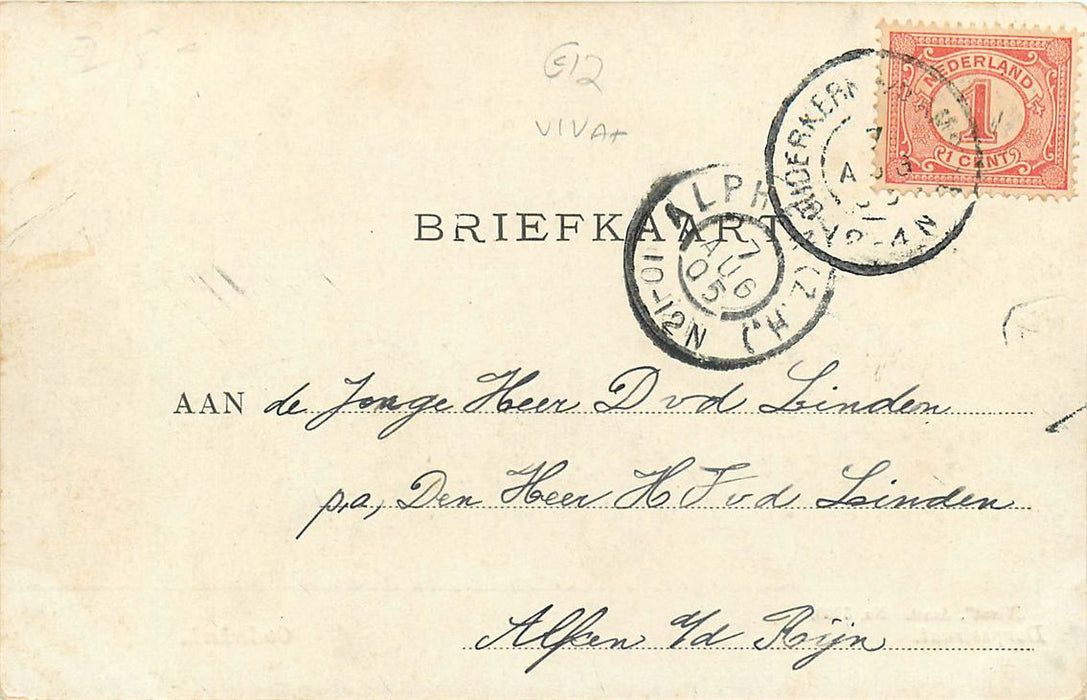 €12
VIVAT
NEDERLAND
1
1 CENT
AUG
12-4N
BRIEFKAART
ALPHEN (Z.H.)
7
AUG
05
10-12N
AAN de Jonge Heer D vd Linden
p,a, Den Heer H F vd Linden
Alfen a/d Rijn